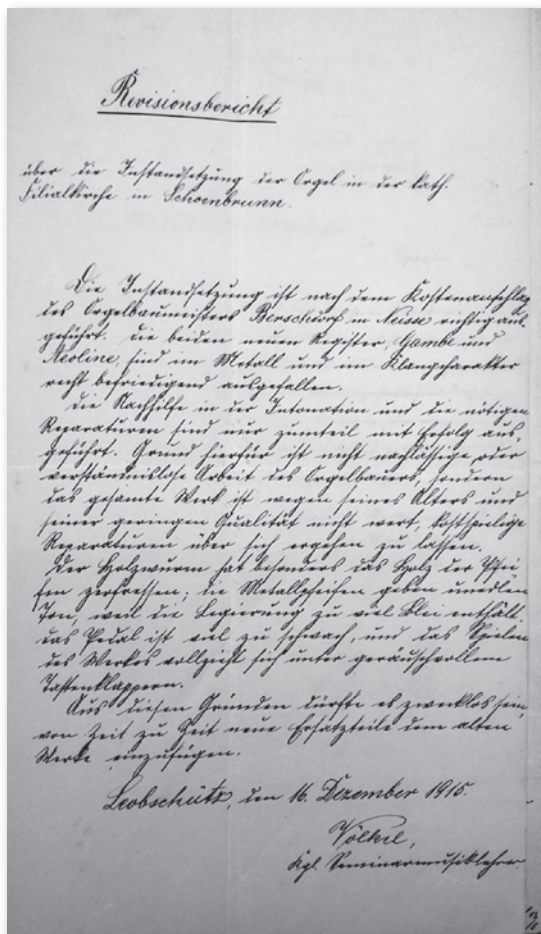 Revisionsbericht
über die Instandsetzung der Orgel in der kath.
Filialkirche in Schoenbrunn.
Die Instandsetzung ist nach dem Kostenanschlag
des Orgelbaumeisters Berschdorf in Neisse richtig aus-
geführt. Die beiden neuen Register, Gambe und
Aeoline, sind im Metall und im Klangcharakter
recht befriedigend ausgefallen.
Die Nachhilfe in der Intonation und die nötigen
Reparaturen sind nur zumteil mit Erfolg aus-
geführt. Grund hierfür ist nicht nachlässige oder
verständnislose Arbeit des Orgelbauers, sondern
das gesamte Werk ist wegen seines Alters und
seiner geringen Qualität nicht wert, kostspielige
Reparaturen über sich ergehen zu lassen.
Der Holzwurm hat besonders das Holz der Pfei-
fen zerfressen; die Metallpfeifen geben unedlen
Ton, weil die Legierung zu viel Blei enthält,
das Pedal ist viel zu schwach, und das Spielen
des Werkes vollzieht sich unter geräuschvollem
Tastenklappern.
Aus diesen Gründen dürfte es zwecklos sein,
von Zeit zu Zeit neue Ersatzteile dem alten
Werke einzufügen.
Leobschütz, den 16. Dezember 1915.
Völkel,
Kgl. Seminarmusiklehrer.